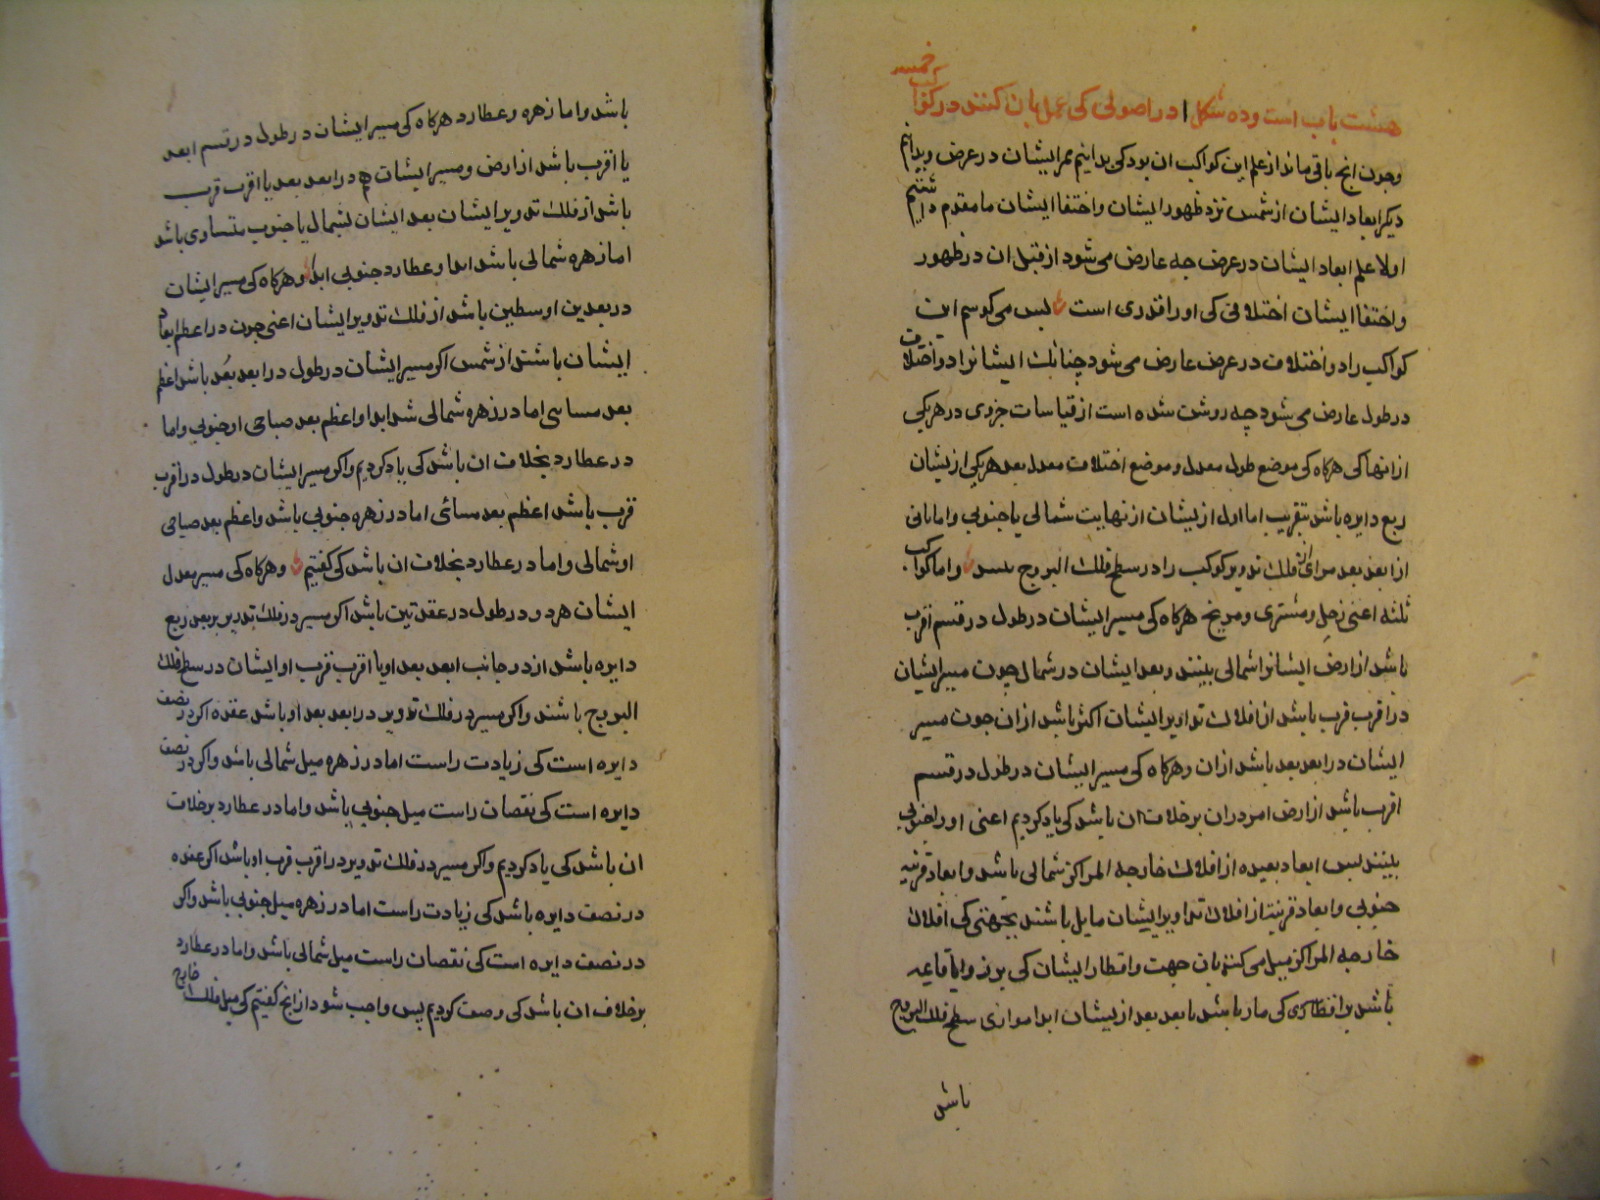 هشت باب است و ده شکل ا در اصولی کی عمل بان کنند در کواکب خمسه
وچون انچ باقی ماند از علم این کواکب ان بود کی بدانیم ممر ایشان در عرض وبدانیم
دیکر ابعاد ایشان از شمس نزد ظهور ایشان واختفا ایشان ما مقدم داشتیم
اولا علم ابعاد ایشان در عرض چه عارض می شود از قبل ان در ظهور
واختفا ایشان اختلافی کی او را قدری است پس می کوییم این
کواکب را دو اختلاف در عرض عارض می شود چنانک ایشانرا دو اختلاف
در طول عارض می شود چه روشن شده است از قیاسات جزوی در هر یکی
از انها کی هرکاه کی موضع طول معدل وموضع اختلاف معدل بعد هر یکی ازیشان
ربع دایره باشد بتقریب اما اول ازیشان از نهایت شمالی یا جنوبی واما ثانی
از ابعد بعد مرای ان فلک تدویر کوکب را در سطح فلک البروج واما کواکب
ثلثه اعنی زحل ومشتری ومریخ هرکاه کی مسیر ایشان در طول در قسم اقرب
باشد از ارض ایشانرا شمالی بینند وبعد ایشان در شمال چون مسیر ایشان
در اقرب قرب باشد از افلاک تداویر ایشان اکثر باشد از ان چون مسیر
ایشان در ابعد بعد باشد ازان وهرکاه کی مسیر ایشان در طول در قسم
اقرب باشد از ارض امر در ان بر خلاف ان باشد کی یاد کردیم اعنی او را جنوبی
بینند پس ابعاد بعیده از افلاک خارجه المراکز شمالی باشد وابعاد قریبه
جنوبی وابعاد قریبه از افلاک تداویر ایشان مایل باشند بجهتی کی افلاک
خارجه المراکز میل می کنند بان جهت واقطار ایشان کی بر زوایا قایمه
باشد بر اقطاری کی مار باشد بابعد بعد ازیشان ابدا موازی سطح فلک البروج
باشد
باشد واما زهره وعطارد هرکاه کی مسیر ایشان در طول در قسم ابعد
یا اقرب باشد از ارض ومسیر ایشان هم در ابعد بعد یا اقرب قرب
باشد از فلک تدویر ایشان بعد ایشان لشمال یا جنوب متساوی باشد
اما زهره شمالی باشد ابدا وعطارد جنوبی ابدا وهرکاه کی مسیر ایشان
در بعدین اوسطین باشد از فلک تدویر ایشان اعنی چون در اعظم ابعاد
ایشان باشند از شمس اکر مسیر ایشان در طول در ابعد بعد باشد اعظم
بعد مسایی اما در زهره شمالی شد ابدا واعظم بعد صباحی او جنوبی واما
در عطارد بخلاف ان باشد کی یاد کردیم واکر مسیر ایشان در طول در اقرب
قرب باشد اعظم بعد مسائی اما در زهره جنوبی باشد واعظم بعد صباحی
او شمالی واما در عطارد بخلاف ان باشد کی کفتیم وهرکاه کی مسیر معدل
ایشان هر دو در طول در عقدتین باشد اکر مسیر در فلک تدویر بر بعد ربع
دایره باشد از در جانب ابعد بعد او یا اقرب قرب او ایشان در سطح فلک
البروج باشند واکر مسیر در فلک تدویر در ابعد بعد او باشد عقده اکر در نصف
دایره است کی زیادت راست اما در زهره میل شمالی باشد واکر در نصف
دایره است کی نقصان راست میل جنوبی باشد واما در عطارد بر خلاف
ان باشد کی یاد کردیم واکر مسیر در فلک تدویر در اقرب قرب او باشد اکر عقده
در نصف دایره باشد کی زیادت راست اما در زهره میل جنوبی باشد واکر
در نصف دایره است کی نقصان راست میل شمالی باشد واما در عطارد
بر خلاف ان باشد کی وصف کردیم پس واجب شود از انچ کفتیم کی میل فلک خارج